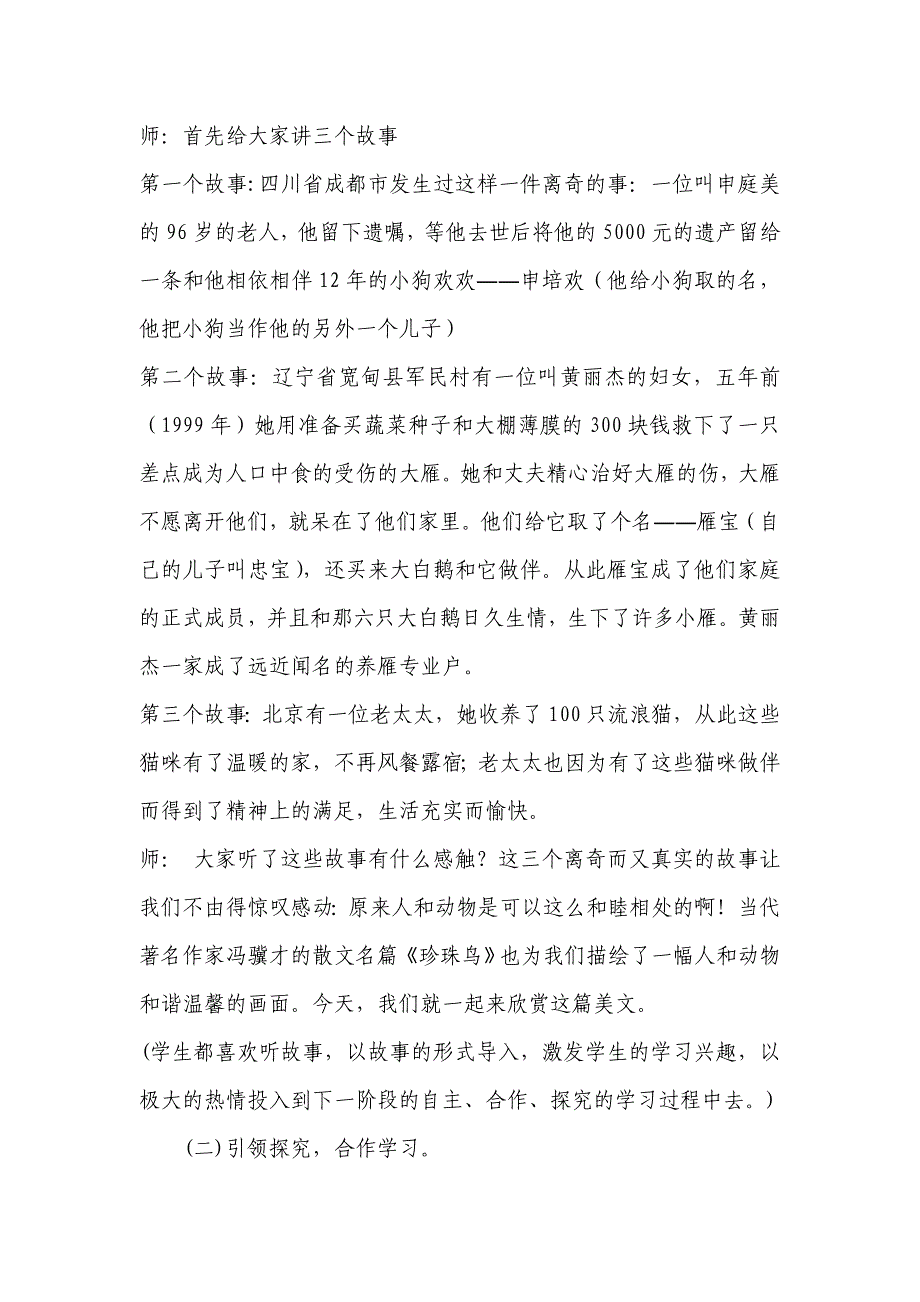 师：首先给大家讲三个故事
第一个故事：四川省成都市发生过这样一件离奇的事：一位叫申庭美
的 96 岁的老人，他留下遗嘱，等他去世后将他的 5000 元的遗产留给
一条和他相依相伴 12 年的小狗欢欢——申培欢（他给小狗取的名，
他把小狗当作他的另外一个儿子）
第二个故事：辽宁省宽甸县军民村有一位叫黄丽杰的妇女，五年前
（1999 年）她用准备买蔬菜种子和大棚薄膜的 300 块钱救下了一只
差点成为人口中食的受伤的大雁。她和丈夫精心治好大雁的伤，大雁
不愿离开他们，就呆在了他们家里。他们给它取了个名——雁宝（自
己的儿子叫忠宝），还买来大白鹅和它做伴。从此雁宝成了他们家庭
的正式成员，并且和那六只大白鹅日久生情，生下了许多小雁。黄丽
杰一家成了远近闻名的养雁专业户。
第三个故事：北京有一位老太太，她收养了 100 只流浪猫，从此这些
猫咪有了温暖的家，不再风餐露宿；老太太也因为有了这些猫咪做伴
而得到了精神上的满足，生活充实而愉快。
师： 大家听了这些故事有什么感触？这三个离奇而又真实的故事让
我们不由得惊叹感动：原来人和动物是可以这么和睦相处的啊！当代
著名作家冯骥才的散文名篇《珍珠鸟》也为我们描绘了一幅人和动物
和谐温馨的画面。今天，我们就一起来欣赏这篇美文。
(学生都喜欢听故事，以故事的形式导入，激发学生的学习兴趣，以
极大的热情投入到下一阶段的自主、合作、探究的学习过程中去。)
(二)引领探究，合作学习。